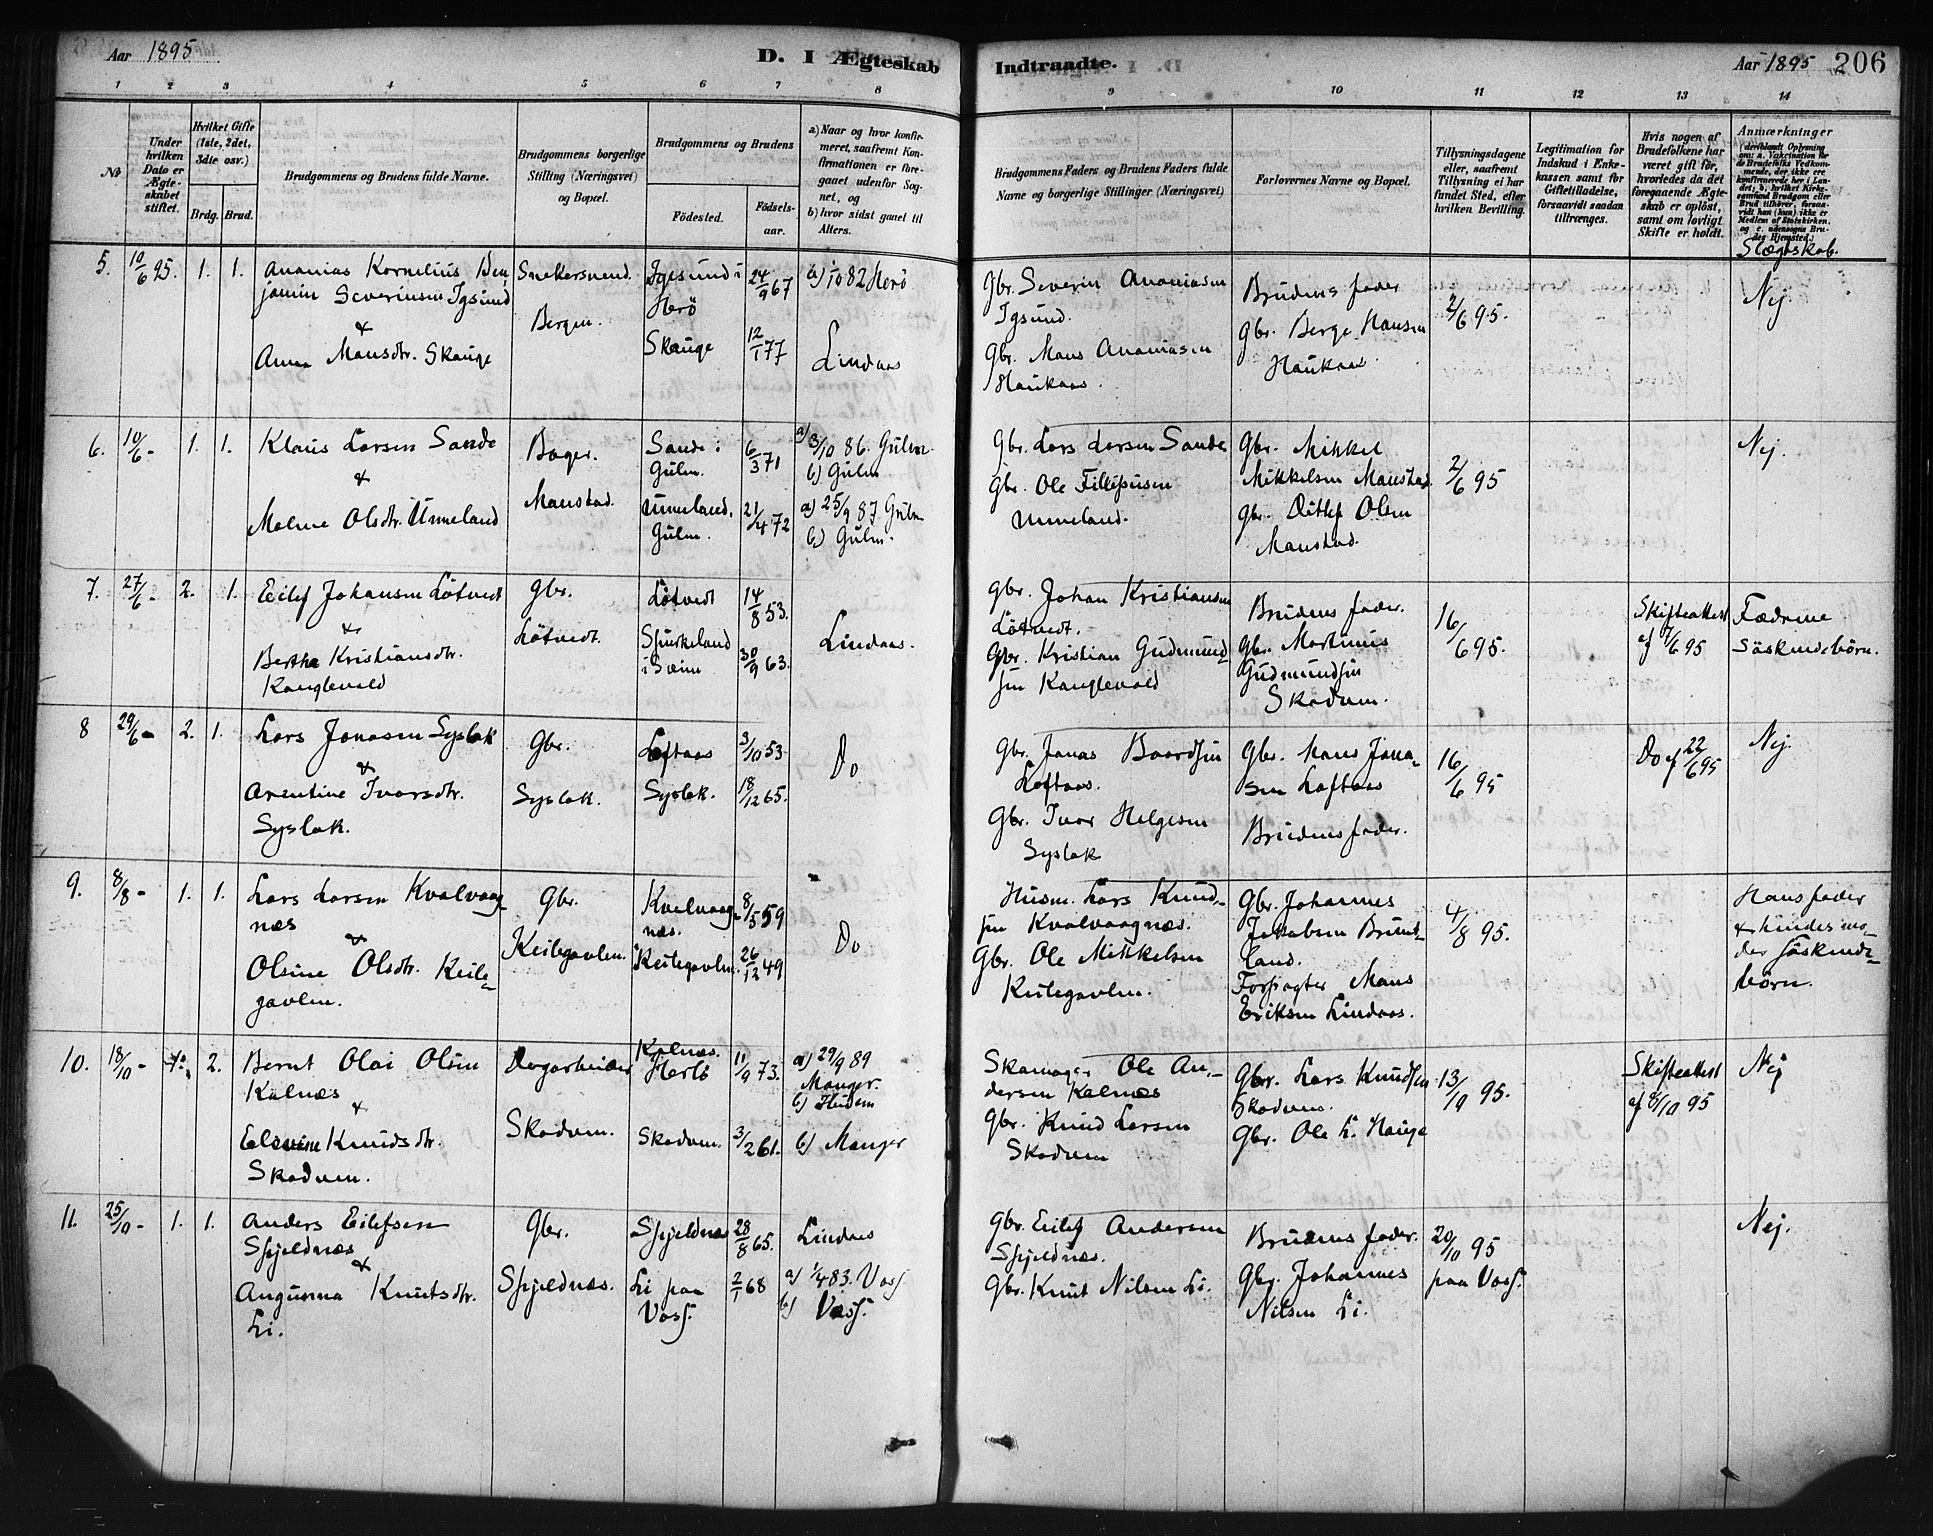 Aar 1895
D. I Ægteskab Indtraadte.
Aar 1895 206
1 2 3 4 5 6 7 8 9 10 11 12 13 14
No
Under hvilken Dato er Ægteskabet stiftet.
Hvilket Gifte (1ste, 2det, 3die osv.)
Brdg. Brud.
Brudgommens og Brudens fulde Navne.
Brudgommens borgerlige Stilling (Næringsvei) og Bopæl.
Brudgommens og Brudens
Födested. Födselsaar.
a) Naar og hvor konfirmeret, saafremt Konfirmationen er foregaaet udenfor Sognet, og
b) hvor sidst gaaet til Alters.
Brudgommens Faders og Brudens Faders fulde Navne og borgerlige Stillinger (Næringsvei)
Forlovernes Navne og Bopæl.
Tillysningsdagene eller, saafremt Tillysning ei har fundet Sted, efter hvilken Bevilling.
Legitimation for Indskud i Enkekassen samt for Giftetilladelse, forsaavidt saadan tiltrænges.
Hvis nogen af Brudefolkene har været gift för, hvorledes da det foregaaende Ægteskab er oplöst, samt om lovligt Skifte er holdt.
Anmærkninger
Slægtskab.
5. 10/6 95. 1. 1.
Ananias Kornelius Ben
jamin Severinsen Igsund
&
Anna Mansdtr. Skauge
Snekersvend
Bergen.
Igesund i
Herö
Skauge
24/9 67
12/1 77
a) 1/10 82 Herö
Lindaas
Gbr. Severin Ananiasen
Igsund.
Gbr. Mans Ananiasen
Haukaas.
Brudens fader
Gbr. Berge Hansen
Haukaas
2/6 95.
Nej
6. 10/6 - 1. 1.
Klaus Larsen Sande
&
Malene Olsdtr. Unneland
Bager.
Manstad.
Sande i
Gulen.
Unneland,
Gulen.
6/3 71
21/4 72
a) 3/10 86. Gulen
b) Gulen
a) 25/9 87 Gulen
b) Gulen.
Gbr. Lars Larsen Sande
Gbr. Ole Fillipusen
Unneland.
Gbr. Mikkel
Mikkelsen Manstad.
Gbr. Ditlef Olsen
Manstad.
2/6 95
Nej.
7. 27/6 - 2. 1.
Eilef Johansen Lötvedt
&
Bertha Kristiansdtr.
Kanglevold
Gbr.
Lötvedt.
Lötvedt
Spurkeland
i Sæim
14/8 53.
30/9 63.
Lindaas.
Gbr. Johan Kristiansen
Lötvedt.
Gbr. Kristian Gudmund
sen Kanglevold
Brudens fader.
Gbr. Martinus
Gudmundsen
Skodven.
16/6 95.
Skifteattest
af 7/6 95
Fædrene
Söskendebörn.
8 29/6 - 2. 1.
Lars Jonasen Syslak
&
Arentine Ivarsdtr.
Syslak.
Gbr.
Syslak.
Loftaas
Syslak.
3/10 53
18/12 65.
Do
Gbr. Jonas Baardsen
Loftaas.
Gbr. Ivar Helgesen
Syslak
Gbr. Mans Jona-
sen Loftaas
Brudens fader.
16/6 95
Do af 22/6 95
Nej.
9. 8/8 - 1. 1.
Lars Larsen Kvalvaag-
næs
&
Olsine Olsdtr. Keile-
gavlen.
Gbr.
Keilegavlen.
Kvalvaag-
næs.
Keilegavlen.
8/5 59
26/12 49
Do
Husm. Lars Knud-
sen Kvalvaagnæs.
Gbr. Ole Mikkelsen
Keilegavlen.
Gbr. Johannes
Jakobsen Brunt-
land.
Forpagter Mans
Eriksen Lindaas.
4/8 95.
Hans fader
& hendes mo-
der Söskende-
börn.
10. 18/10 - 1. 2.
Bernt Olai Olsen
Kalnæs
&
Elevine Knudsdtr.
Skodven.
Dagarbeider
Skodven.
Kalnæs.
Herlö
Skodven.
11/9 73.
3/2 61.
a) 29/9 89
Manger.
b) Hudem
b) Manger
Skomager Ole An-
dersen Kalnæs
Gbr. Knud Larsen
Skodven
Gbr. Lars Knudsen
Skodven.
Gbr. Ole L. Hauge
13/10 95.
Skifteattest
af 8/10 95
Nej
11. 25/10 - 1. 1.
Anders Eilefsen
Spjeldnæs
&
Angunna Knutsdtr.
Li.
Gbr.
Spjeldnæs.
Spjeldnæs
Li paa
Voss.
28/8 65.
2/1 68
Lindaas
a) 1/4 83. Voss
b) Voss.
Gbr. Eilef Andersen
Spjeldnæs.
Gbr. Knut Nilsen Li.
Brudens fader.
Gbr. Johannes
Nilsen Li.
20/10 95
paa Voss.
Nej.